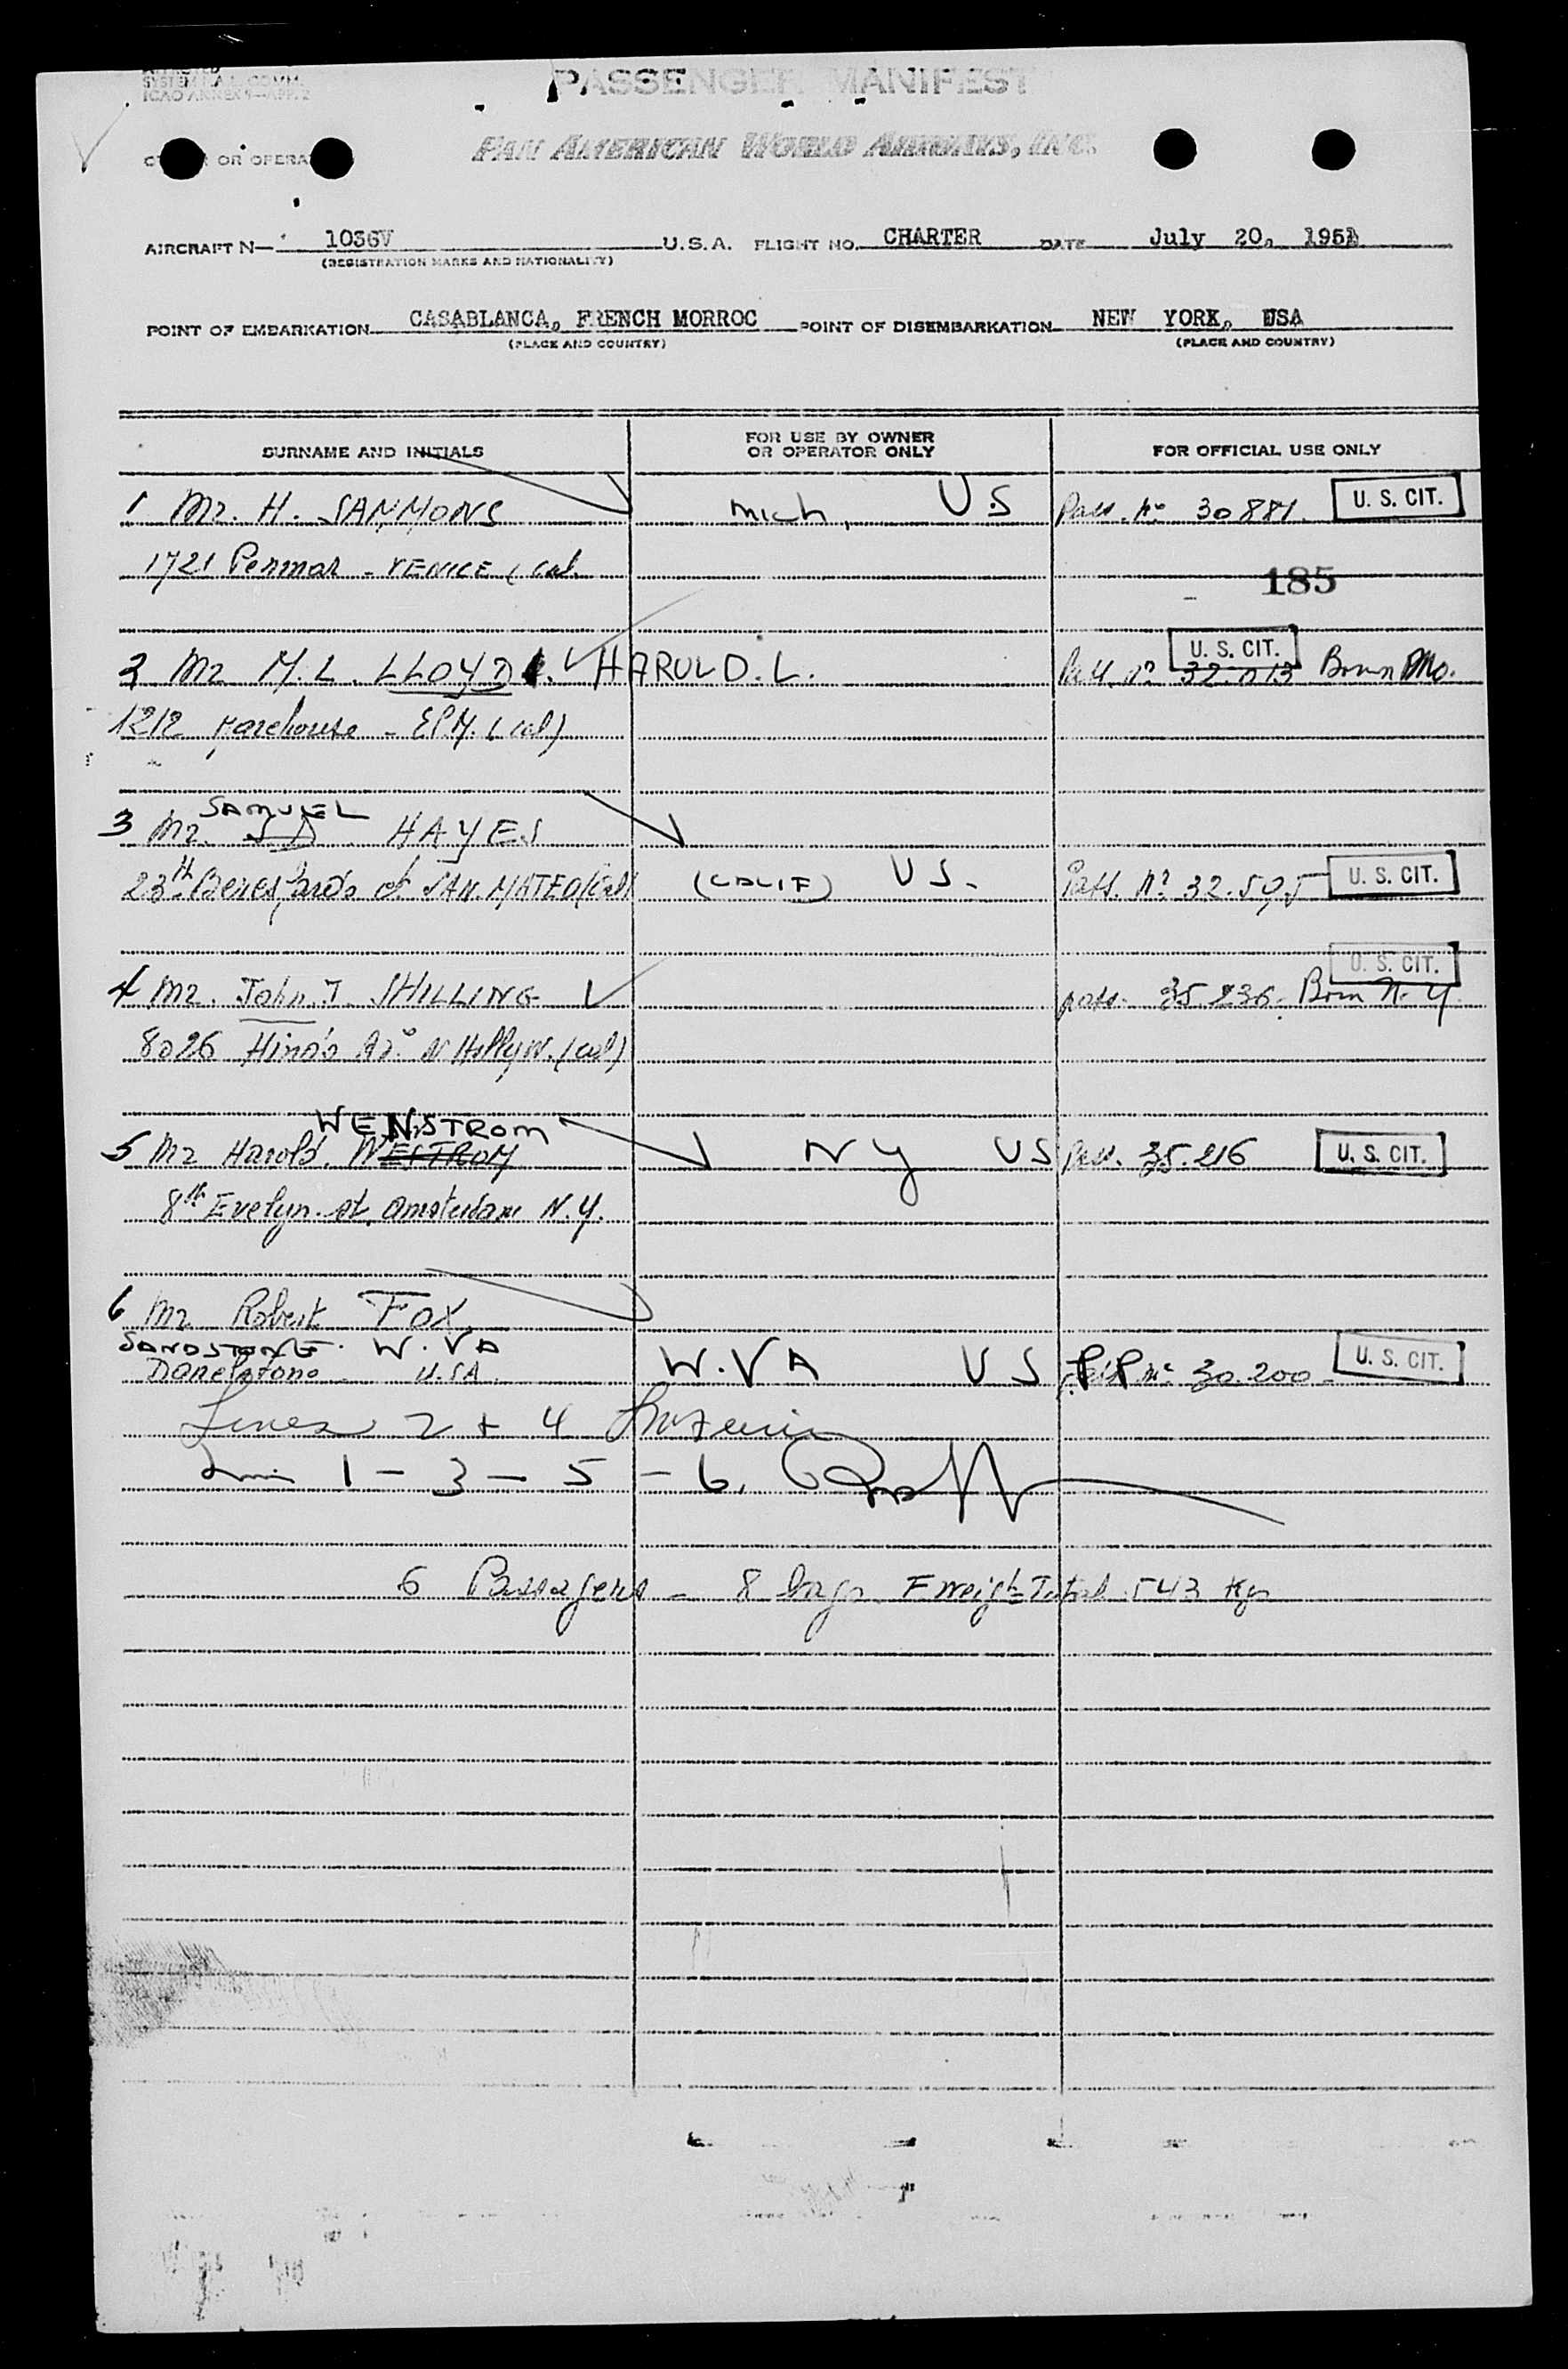 PASSENGER MANIFEST
PAN AMERICAN WORLD AIRWAYS, INC.
OR OPERA
AIRCRAFT N— 1036V U.S.A. FLIGHT NO. CHARTER DATE July 20, 1951
(REGISTRATION MARKS AND NATIONALITY)
POINT OF EMBARKATION CASABLANCA, FRENCH MORROC POINT OF DISEMBARKATION NEW YORK, USA
(PLACE AND COUNTRY) (PLACE AND COUNTRY)
SURNAME AND INITIALS FOR USE BY OWNER OR OPERATOR ONLY FOR OFFICIAL USE ONLY
1 Mr. H. SANMONS Mich, U.S Pass. No 30881. U. S. CIT.
1721 Penmar - VENICE (Cal.
185
2 Mr M.L. LLOYD HAROLD. L. Pass. No 32.013 U. S. CIT. Born Mo.
1212 - (Cal)
SAMUEL
3 Mr. HAYES
23th St. SAN. MATEO (Cal) (CALIF) US. Pass. No 32.505 U. S. CIT.
U. S. CIT.
4 Mr. John. J. SHILLING pass. 35.236. Born N.Y.
8026 N Hollyw. (Cal)
WENSTROM
5 Mr Harold. WESTROM NY US Pass. 35.216 U. S. CIT.
8th Evelyn. st. Amsterdam N.Y.
6 Mr Robert FOX.
SANDSTONE. W. VA
Danelstone U.SA. W.VA US PP no 30.200 - U. S. CIT.
Lines 2 + 4
1 - 3 - 5 - 6.
6 Passagers - 8 bags. Total 543 Kgs